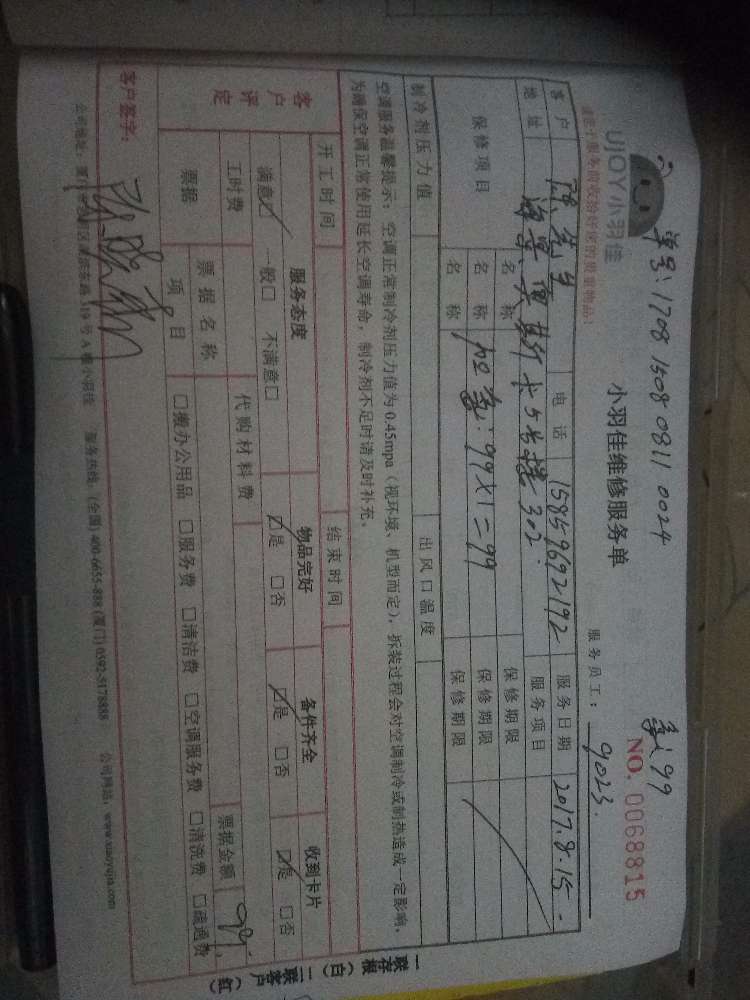 单号:1708 1508 0811 0024
氨:99
UJOY小羽佳
小羽佳维修服务单
NO. 0068815
服务员工: 9023.
客户 陈先生 电话 15859692192 服务日期 2017.8.15.
地址 海景奥斯卡5号楼302. 服务项目
保修项目 名称 保修期限
名称 加氨:99×1=99 保修期限
名称 保修期限
制冷剂压力值 出风口温度
空调服务温馨提示:空调正常制冷剂压力值为0.45mpa(视环境、机型而定),拆装过程会对空调制冷或制热造成一定影响,
为确保空调正常使用延长空调寿命,制冷剂不足时请及时补充。
开工时间 结束时间
客户评定 服务态度 物品完好 备件齐全 收到卡片
满意☑ 一般□ 不满意□ ☑是 □否 ☑是 □否 ☑是 □否
工时费 代购材料费
票据 票据名称 票据金额 99.
项目 □搬办公用品 □服务费 □清洁费 □空调服务费 □清洗费 □疏通费
客户签字:
服务热线:(全国) 400-6655-888 (厦门) 0592-5178888 公司网站:www.xiaoyujia.com
一联存根(白) 二联客户(红)